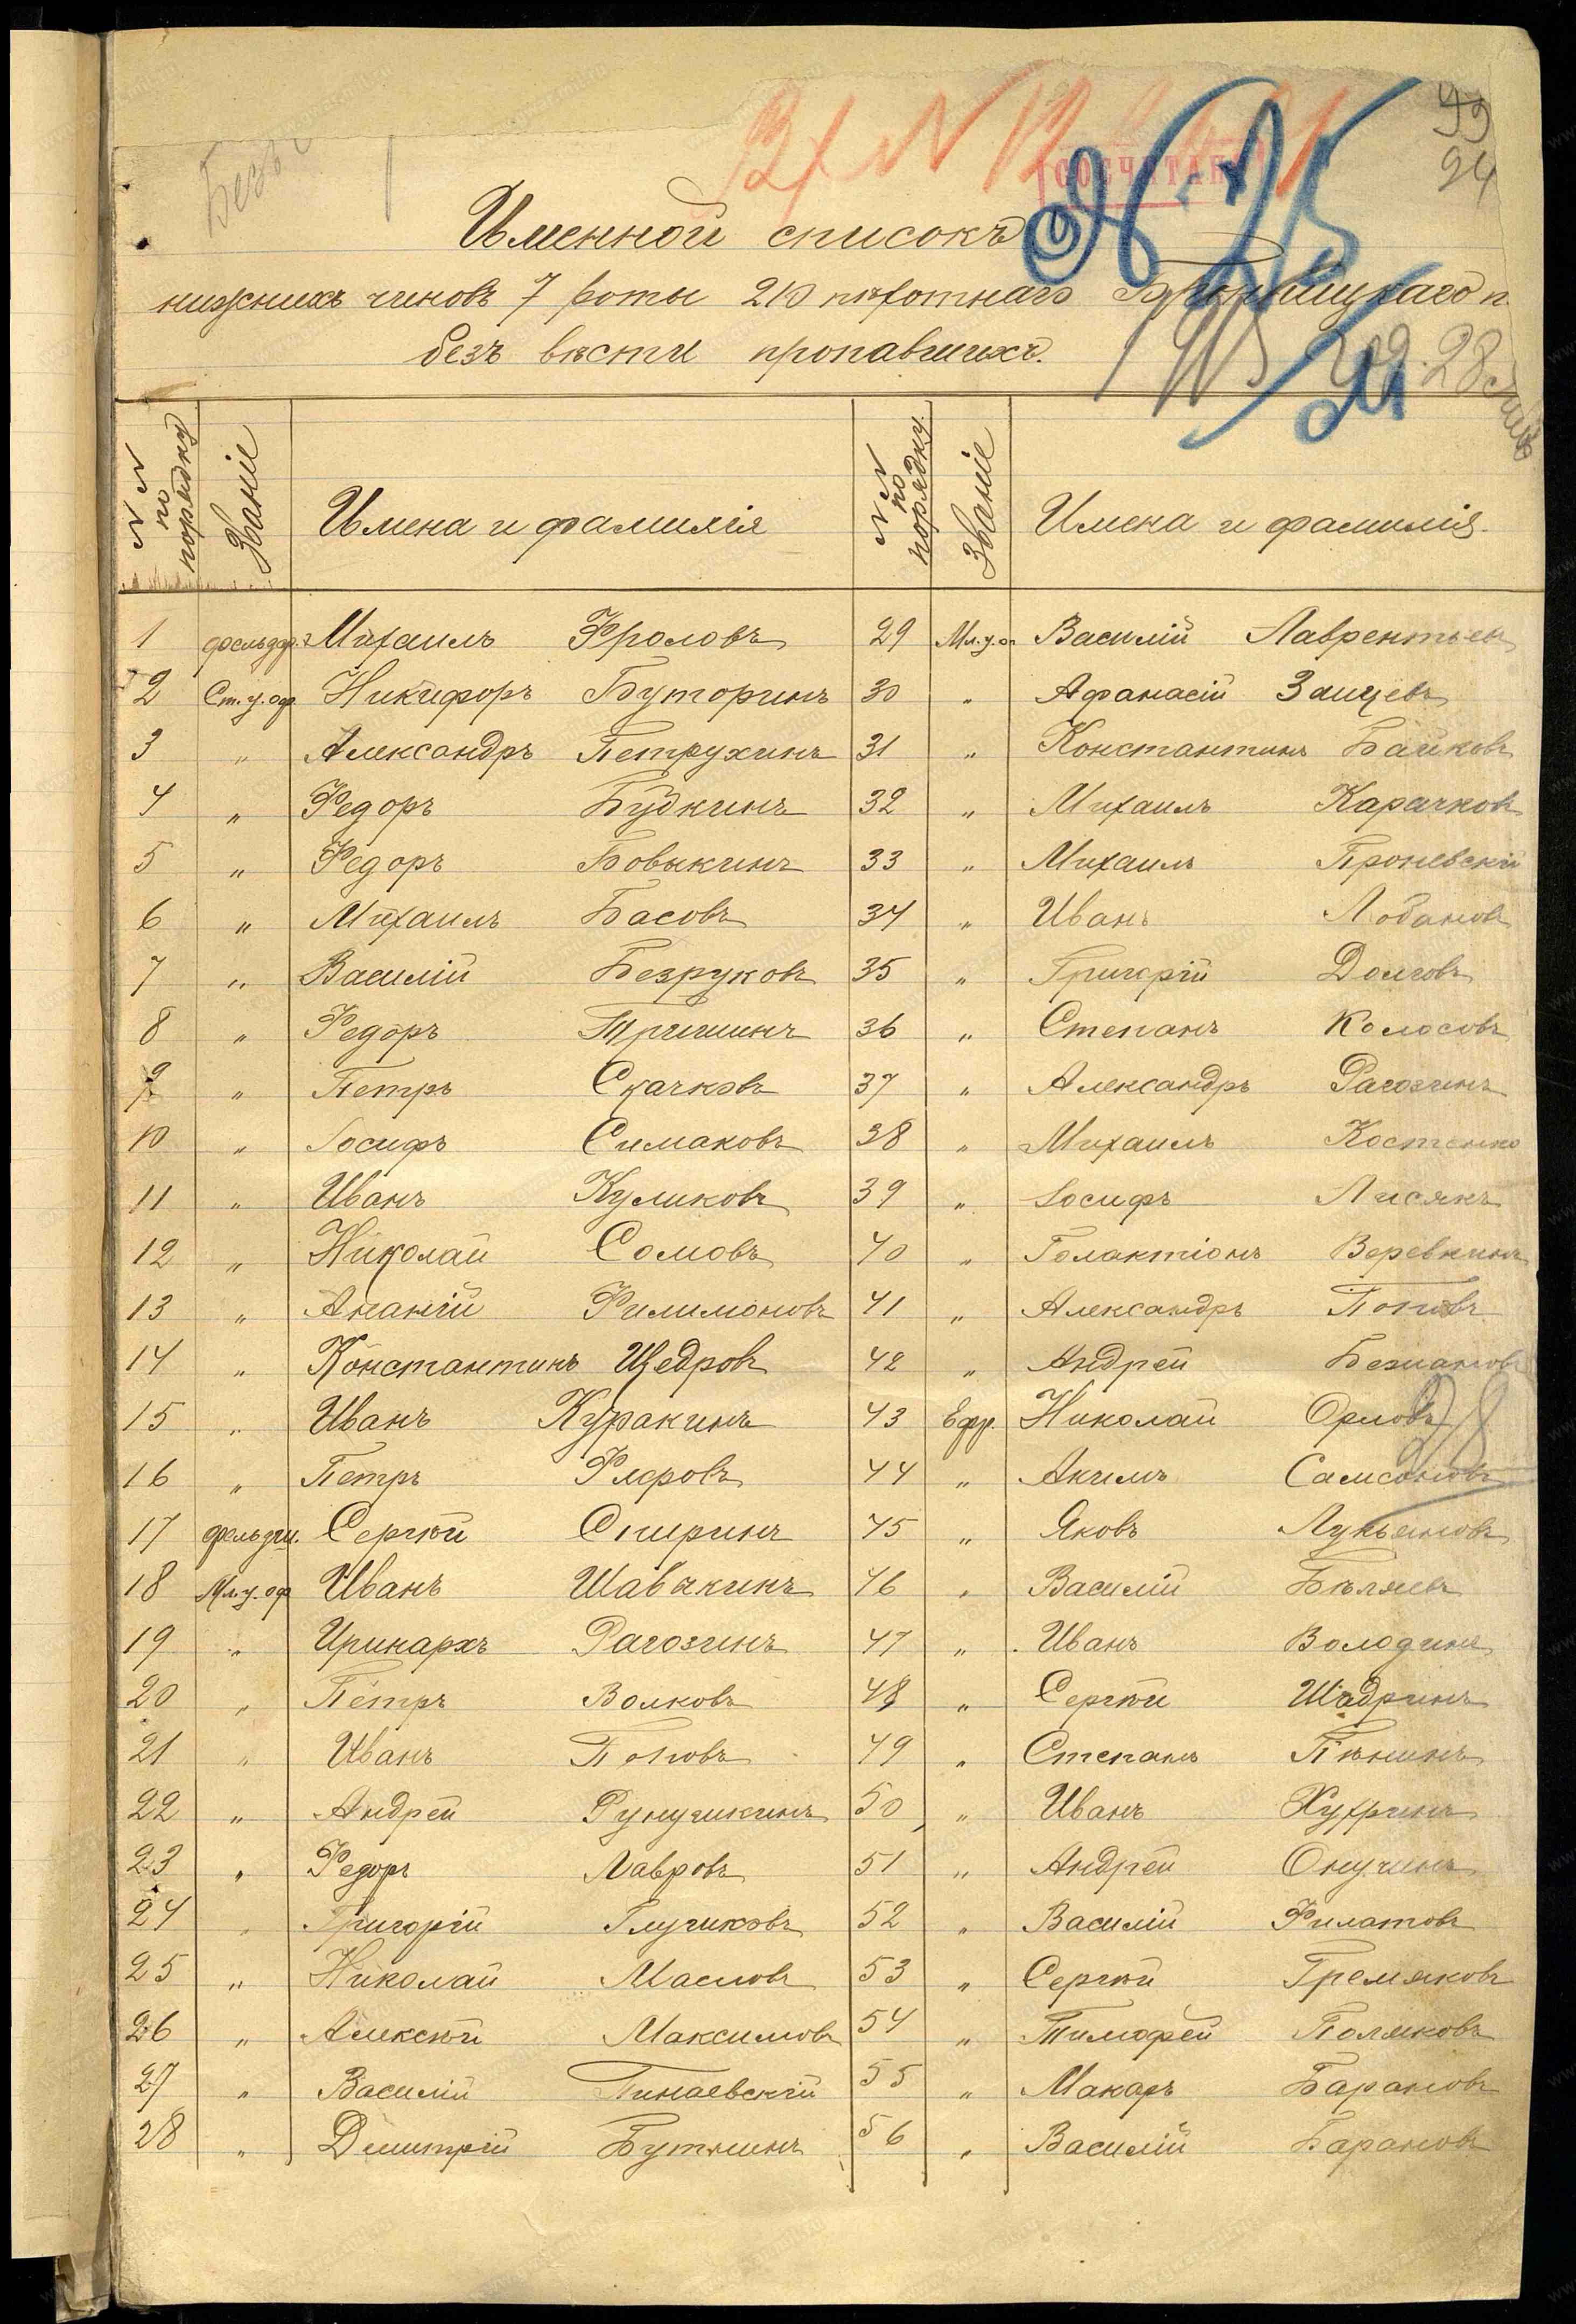 93
94
Вх N 12
СОСЧИТАНО
Именной списокъ
нижнихъ чиновъ 7 роты 210 пѣхотнаго п.
безъ вѣсти пропавшихъ.
N N по порядку Званіе Имена и фамилія N N по порядку Званіе Имена и фамилія.
1 фельдф. Михаилъ Фроловъ 29 Мл.у.о. Василій Лаврентьев
2 Ст.у.оф. Никифоръ Буторинъ 30 „ Афанасій Заицевъ
3 „ Александръ Петрухинъ 31 „ Константинъ Байковъ
4 „ Федоръ Будкинъ 32 „ Михаилъ Карачковъ
5 „ Федоръ Бовыкинъ 33 „ Михаилъ Проневскій
6 „ Михаилъ Басовъ 34 „ Иванъ Лобановъ
7 „ Василій Безруковъ 35 „ Григорій Долговъ
8 „ Федоръ Тришинъ 36 „ Степанъ Колосовъ
9 „ Петръ Скачковъ 37 „ Александръ Рагозинъ
10 „ Іосифъ Симаковъ 38 „ Михаилъ Костенко
11 „ Иванъ Куликовъ 39 „ Іосифъ Лисякъ
12 „ Николай Сомовъ 40 „ Галактіонъ Веревкинъ
13 „ Ананій Филимоновъ 41 „ Александръ Поповъ
14 „ Константинъ Щедровъ 42 „ Андрей
15 „ Иванъ Куракинъ 43 Ефр. Николай Орловъ
16 „ Петръ Флеровъ 44 „ Акимъ Самсоновъ
17 фельдш. Сергѣй Спиринъ 45 „ Яковъ Лукьяновъ
18 Мл.у.оф. Иванъ Шавакинъ 46 „ Василій Бѣляевъ
19 „ Иринархъ Рагозинъ 47 „ Иванъ Володинъ
20 „ Петръ Волковъ 48 „ Сергѣй Шадринъ
21 „ Иванъ Поповъ 49 „ Степанъ Пѣнинъ
22 „ Андрей 50 „ Иванъ
23 „ Федоръ Лавровъ 51 „ Андрей Онучинъ
24 „ Григорій Глушковъ 52 „ Василій Филатовъ
25 „ Николай Масловъ 53 „ Сергѣй Гремяковъ
26 „ Алексѣй Максимовъ 54 „ Тимофей Поляковъ
27 „ Василій Пинаевскій 55 „ Макаръ Барановъ
28 „ Дмитрій 56 „ Василій Барановъ